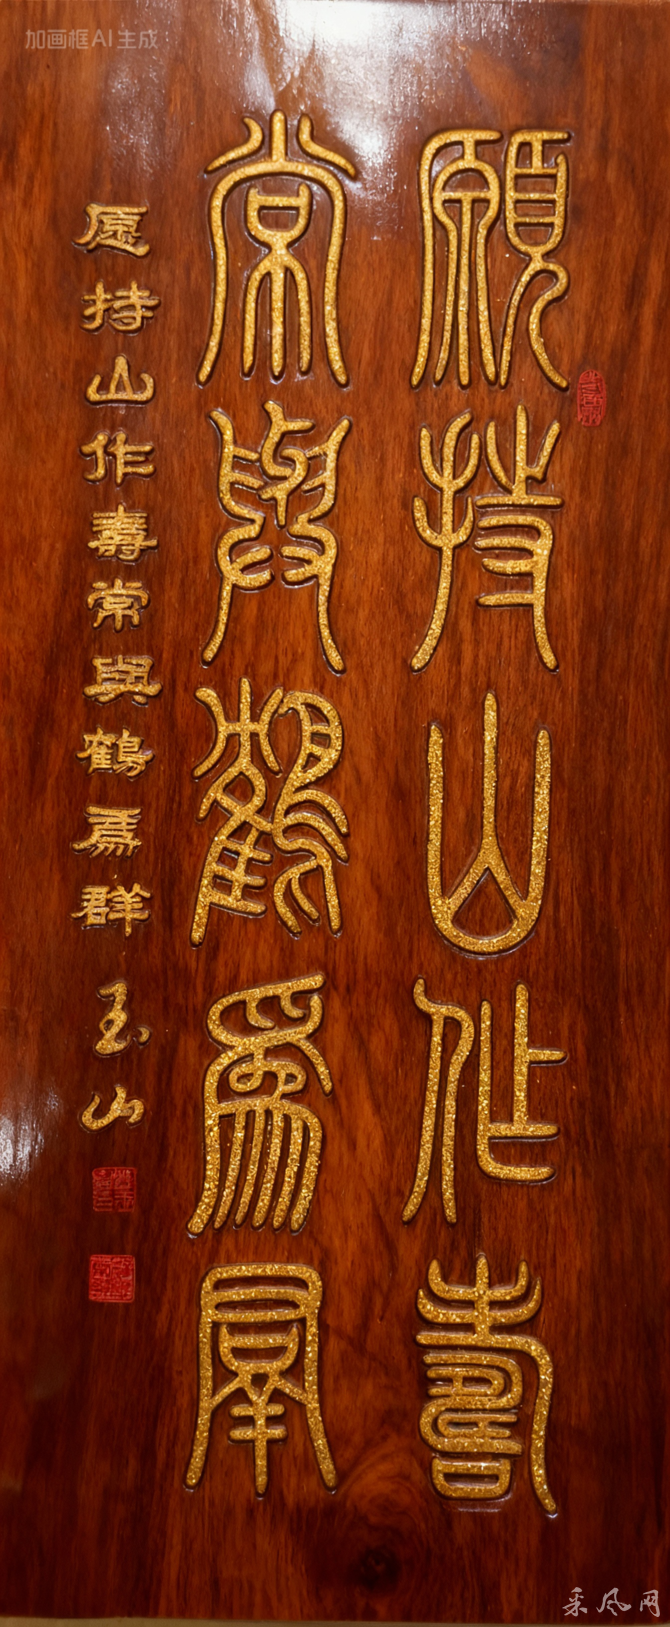 加画框AI生成
願持山作壽
常與鶴爲群
愿持山作壽常與鶴爲群
玉山
采风网